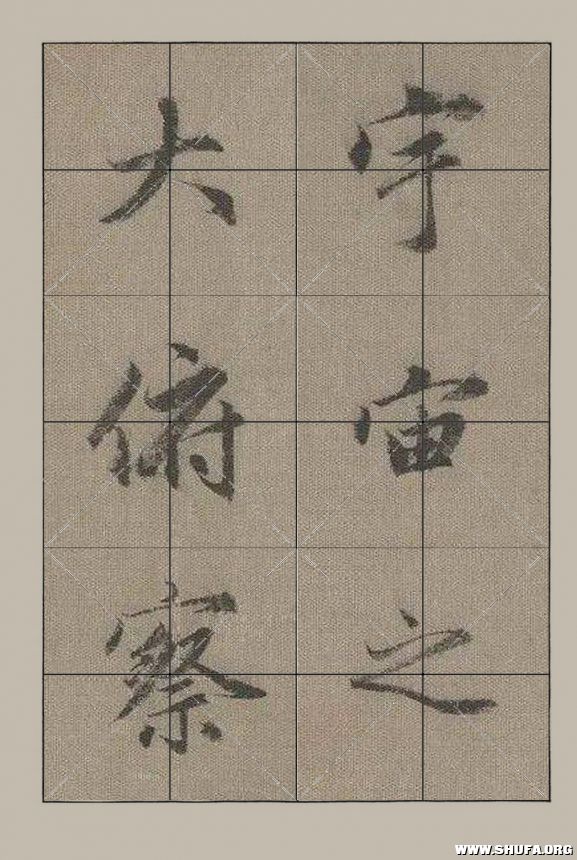 宇宙之
大俯察
WWW.SHUFA.ORG